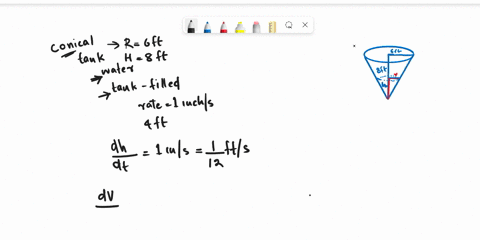 conical → R = 6ft
tank H = 8ft
→ water
→ tank - filled
rate = 1 inch/s
4ft
dh/dt = 1 in/s = 1/12 ft/s
dV
6ft
8ft
r
h